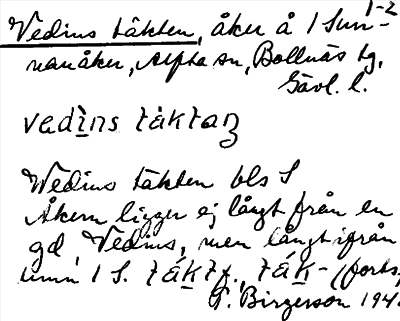 1-2
Vedins täkten, åker å 1 Sun-
nanåker, Alfta sn, Bollnäs tg,
Gävl. l.
vedins täktaɳ
Wedins täkten bls S
Åkern ligger ej långt från en
gd, Vedins, men långt ifrån
umn 1 S. täktf., täk- (forts.
P. Birgerson 194